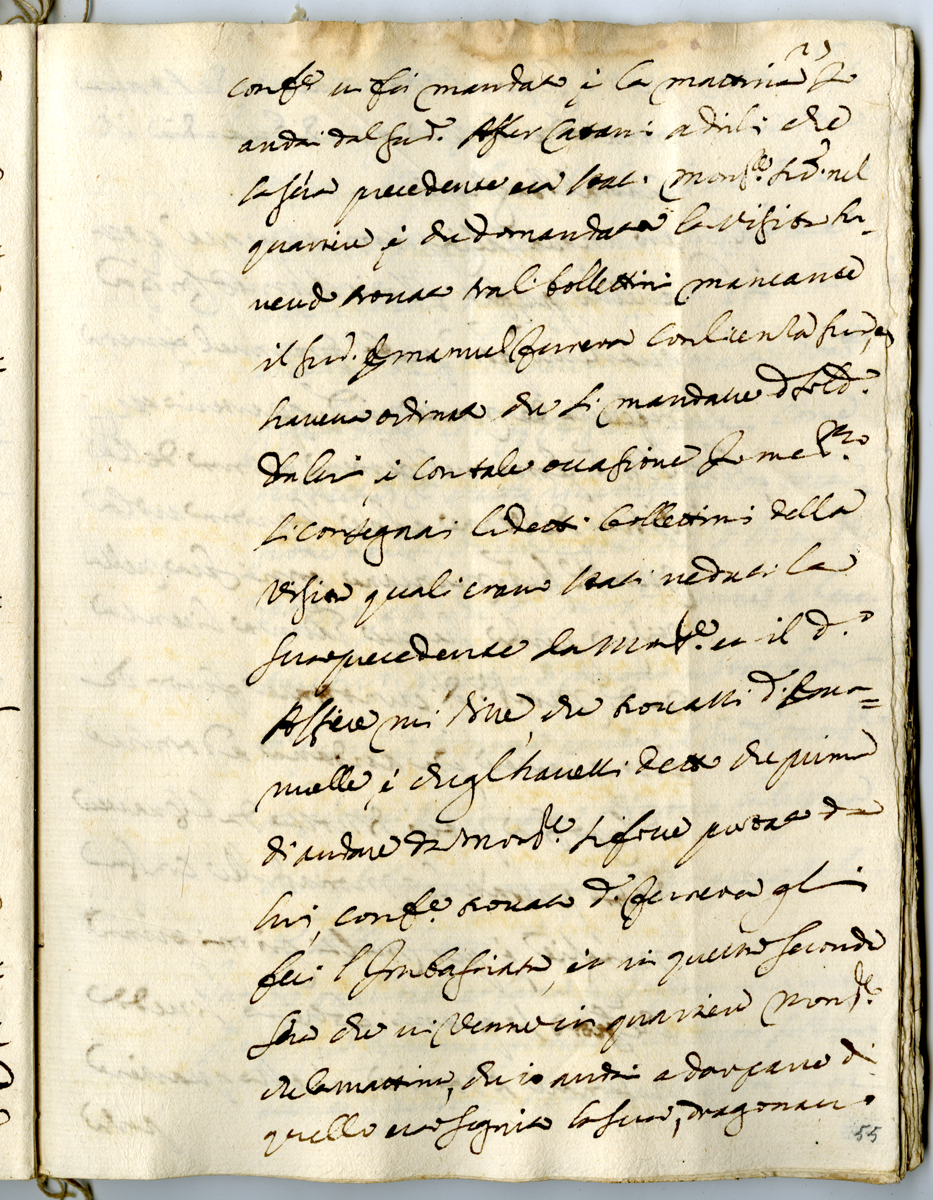 conf.e vi fù mandato e la mattina
andai dal sud.o Affier Catani a dirli che
la sera precedente era stato Mons.re sud.o nel
quartiere e che domandata la visita ha-
vend trovato tra li bollettini mancante
il sud.o Emanuel Ferrera con licenza sud.a
haveva ordinato che si mandasse
da lui e con tale occasione
li consegnai li detti bollettini della
visita quali erano stati veduti la
sera precedente da Mons.re et il d.o
Affiere mi disse, che trovassi d.o Ema=
nuelle e che gl'havessi detto che prima
di andare da Mons.re si fosse portato da
lui, conf.e trovato d.o Ferrera gli
feci l'Imbasciata, et in questa seconda
sera che vi venne in quartiere Mons.re
che la mattina, che io andai a dar parte di
quello era seguito la sera,
55